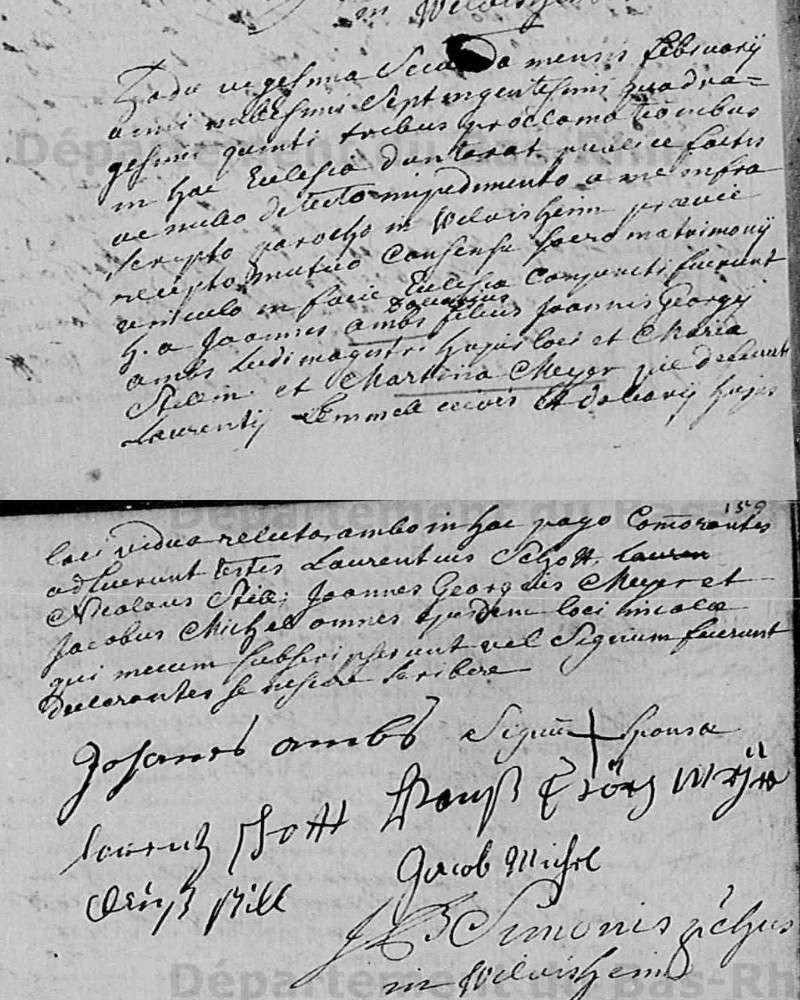 in Wilwisheim
Hodie vigesima Secunda mensis februarij
anni millesimi Septingentesimi quadra=
gesimi quinti tribus proclamationibus
in hac Ecclesia dominicat publice factis
ac nullo detecto impedimento a me infra
scripto parocho in Wilwisheim prævie
recepto mutuo consensu sacro matrimonij
vinculo in facie Ecclesiæ Conjuncti fuerunt
h. a Joannes ambs filius Joannis Georgij
ambs Ludimagistri hujus loci et Maria
et Martina Meyer pie defuncti
Laurentij civis et hujus
159
loci vidua relicta, ambo in hoc pago Com̄orantes
adfuerunt testes Laurentius Schott, Lauren
Nicolaus Joannes Georgius Meyer et
Jacobus Michel omnes ejusdem loci incolæ
qui mecum subscripserunt vel Signum fecerunt
declarantes se nescire scribere
Johanes ambs Signū + Sponsæ
Lorentz Schott Hanß Görg Meÿer
Jacob Michel
J B Simonis
in Wilwisheim
Département du Bas-Rhin